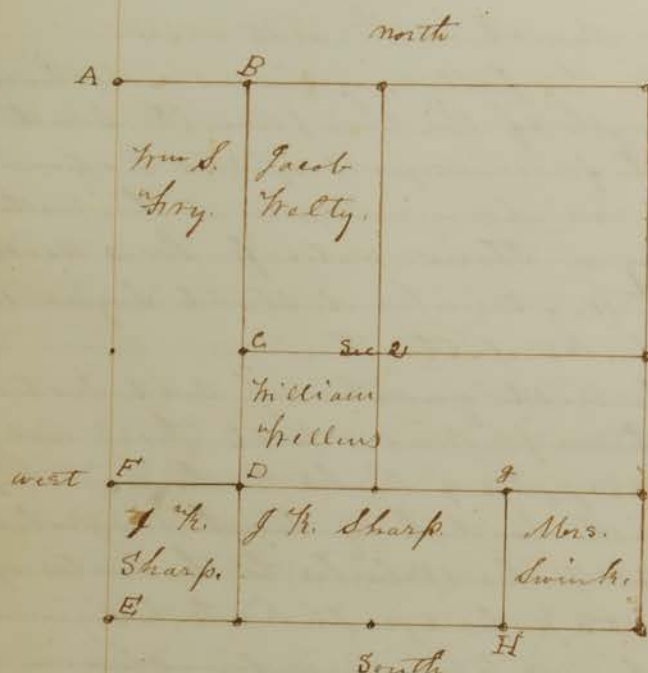 north
A
B
Wm S.
Fry.
Jacob
Welty.
C
Sec 2
William
west
F
D
g
J K. Sharp.
Sharp.
Mrs.
Swink.
E
H
South